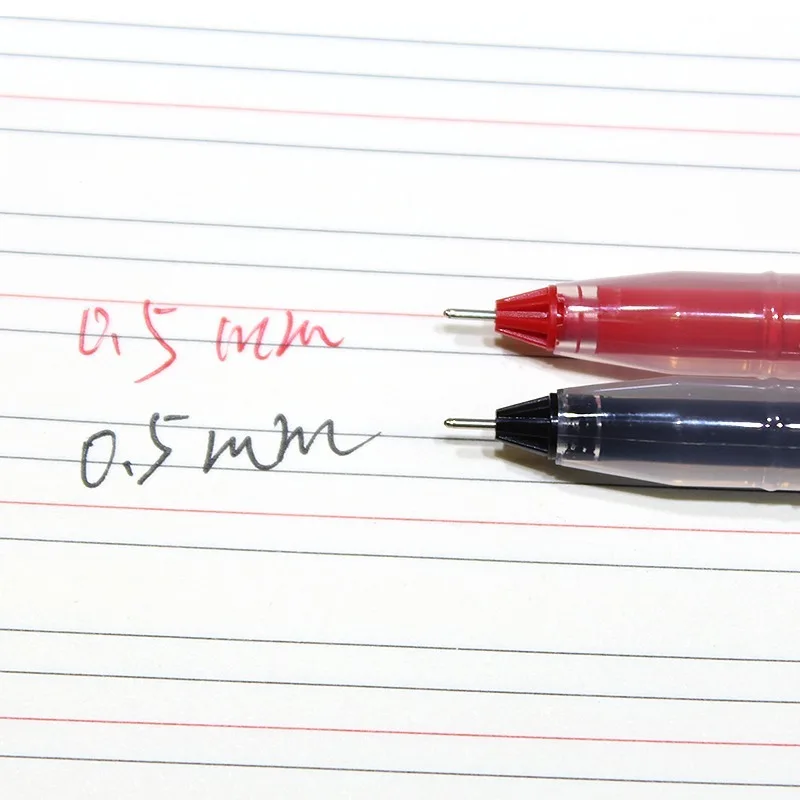 0.5 mm
0.5 mm